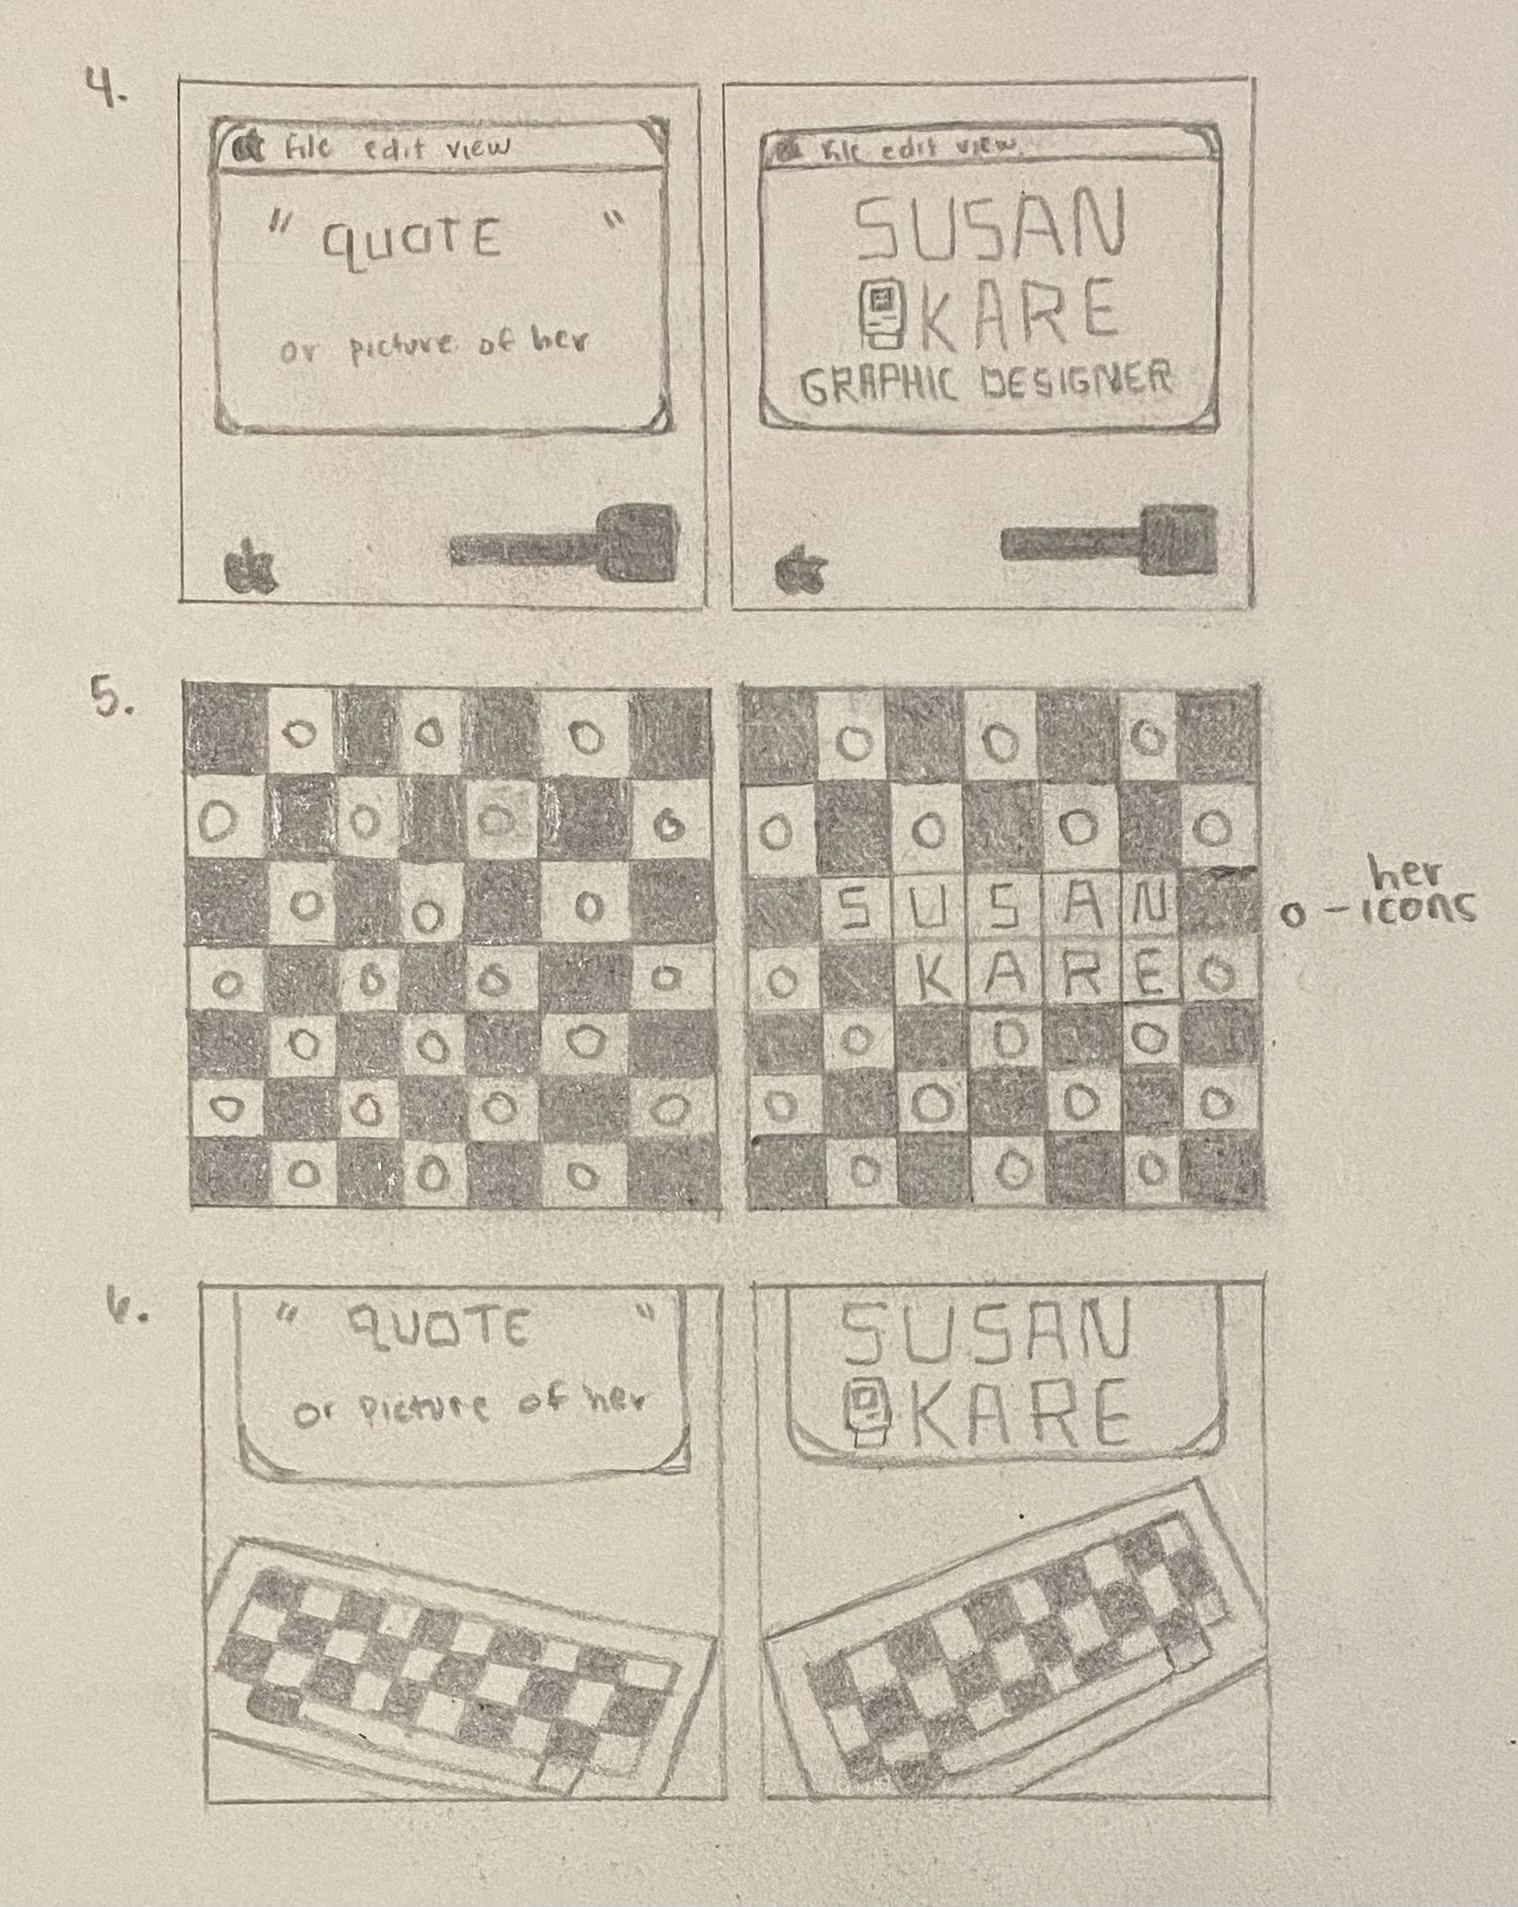 4.
File edit view
" QUOTE "
or picture of her
File edit view
SUSAN
KARE
GRAPHIC DESIGNER
5.
SUSAN
KARE
o - her
icons
6.
" QUOTE "
or picture of her
SUSAN
KARE